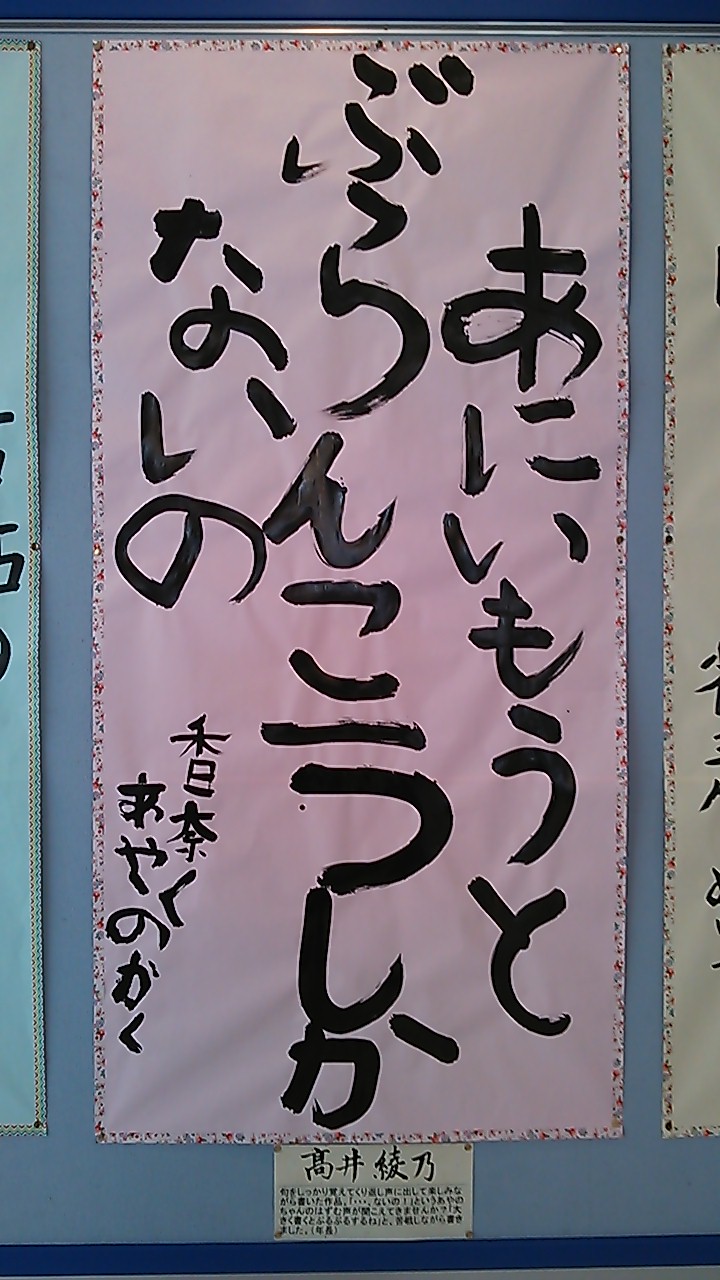 あにいもうと
ぶらんこ二つしか
ないの
香奈く
あやのかく
髙井綾乃
句をしっかり覚えてくり返し声に出して楽しみな
がら書いた作品。「・・・、ないの！」というあやの
ちゃんのはずむ声が聞こえてきませんか？「大
きく書くとぶるぶるするね」と、苦戦しながら書き
ました。（年長）